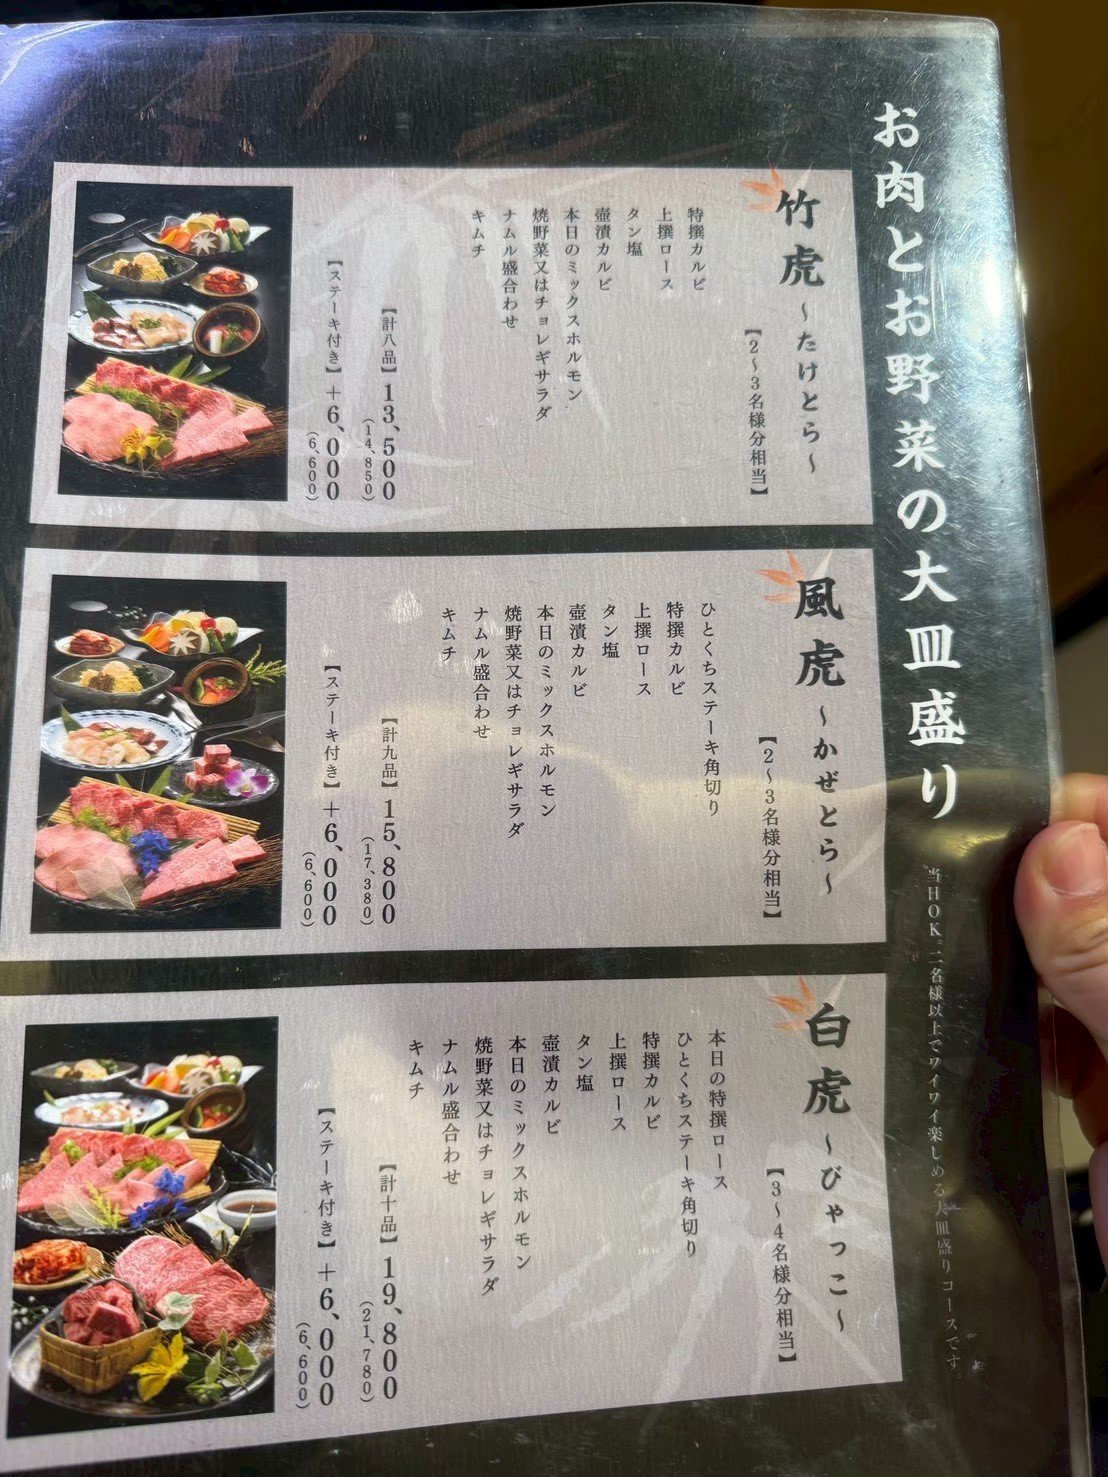 お肉とお野菜の大皿盛り
当日OK。二名様以上でワイワイ楽しめる大皿盛りコースです
竹虎 ～たけとら～
【2～3名様分相当】
特撰カルビ
上撰ロース
タン塩
壺漬カルビ
本日のミックスホルモン
焼野菜又はチョレギサラダ
ナムル盛合わせ
キムチ
【計八品】13,500
(14,850)
【ステーキ付き】+6,000
(6,600)
風虎 ～かぜとら～
【2～3名様分相当】
ひとくちステーキ角切り
特撰カルビ
上撰ロース
タン塩
壺漬カルビ
本日のミックスホルモン
焼野菜又はチョレギサラダ
ナムル盛合わせ
キムチ
【計九品】15,800
(17,380)
【ステーキ付き】+6,000
(6,600)
白虎 ～びゃっこ～
【3～4名様分相当】
本日の特撰ロース
ひとくちステーキ角切り
特撰カルビ
上撰ロース
タン塩
壺漬カルビ
本日のミックスホルモン
焼野菜又はチョレギサラダ
ナムル盛合わせ
キムチ
【計十品】19,800
(21,780)
【ステーキ付き】+6,000
(6,600)